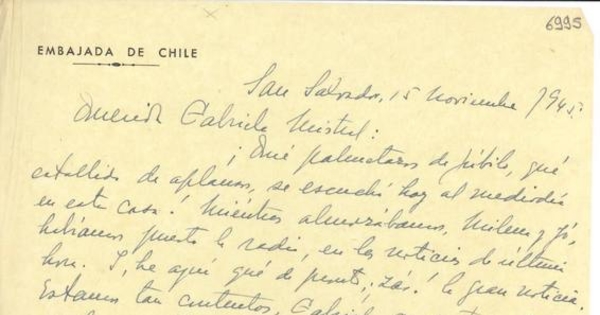 6995
EMBAJADA DE CHILE
San Salvador, 15 noviembre 1945.
Querida Gabriela Mistral:
¡Qué palmetazos de júbilo, qué
estallido de aplausos, se escuchó hoy al mediodía
en esta casa! Mientras almorzábamos, Milena y yó,
habíamos puesto la radio, en las noticias de última
hora. I, he aquí qué de pronto, ¡zás! la gran noticia.
Estamos tan contentos, Gabriela